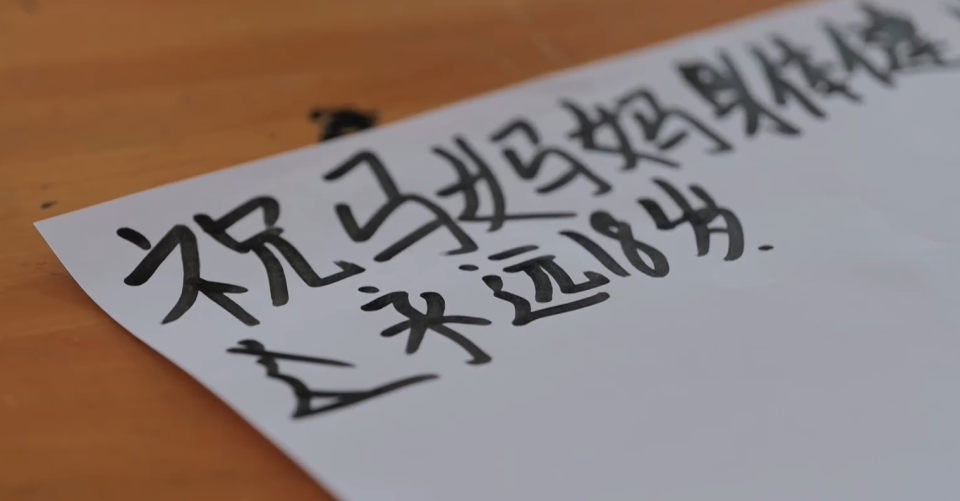 祝马妈妈身体健
永远18岁.